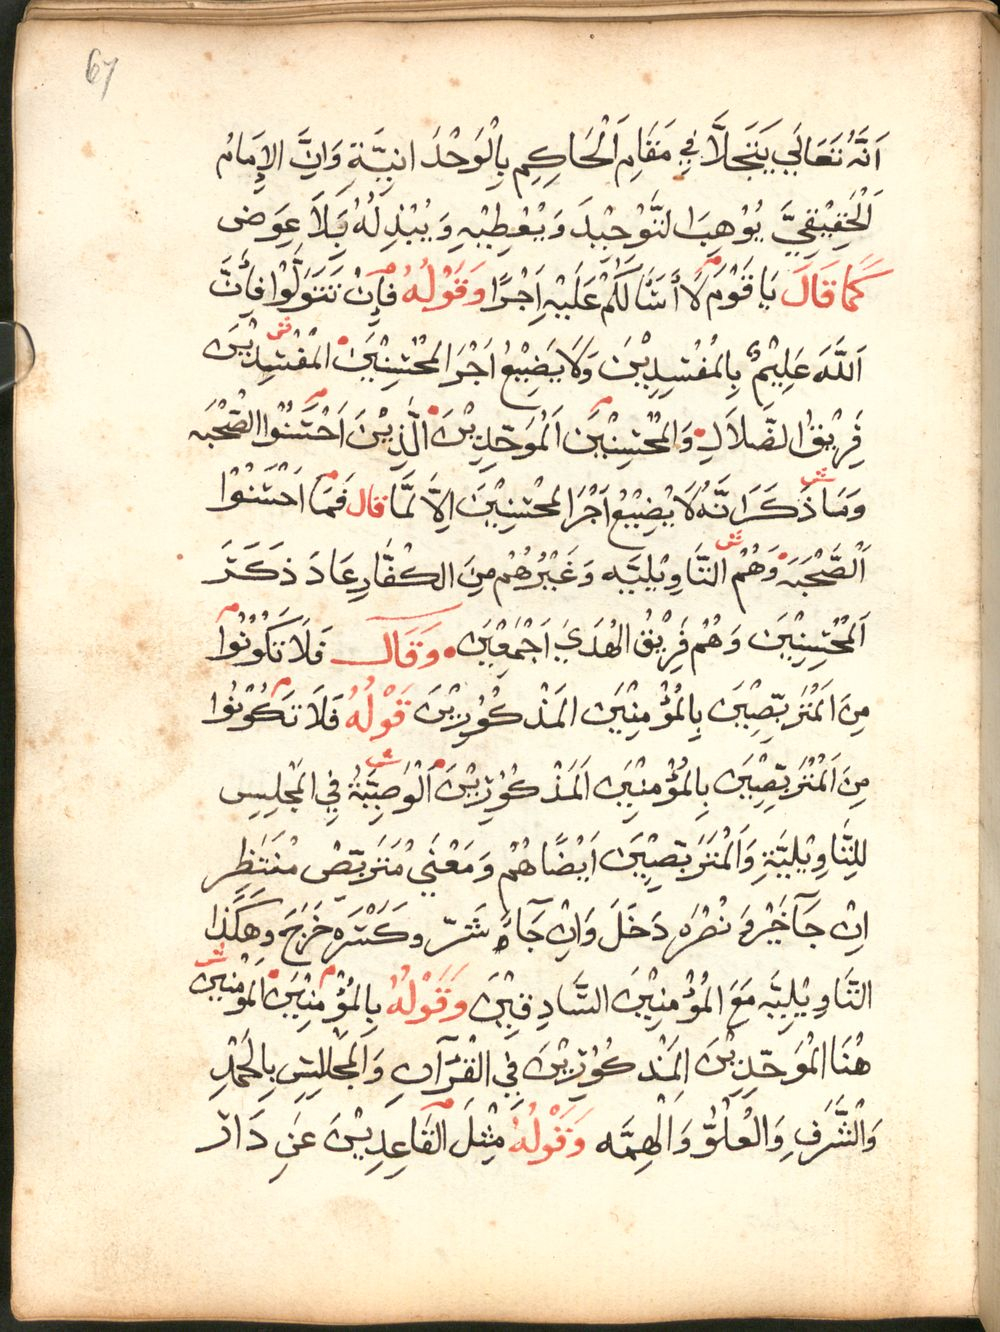 67
اَنَّهُ تَعَالَي يَتَجَلَّا فِي مَقَامِ اَلْحَاكِمِ بِالْوَحْدَانِيَّةِ وَاِنَّ الاِمَامَ
اَلْحَقِيْقِيَّ يُوْهِبَ التَّوْحِيْدَ وَيُعْطِيْهِ وَيُبْذِلَهُ بِلَا عِوَض
كَمَا قَالَ يَا قَوْمِ لَا أَسْأَلُكُمْ عَلَيْهِ اَجْرًا وَقَوْلُهُ فَاِنْ تَتَوَلَّوْا فَاِنَّ
اَللَّهَ عَلِيْمٌ بِالمُفْسِدِيْنَ وَلَا يَضِيْعُ اَجْرَ المُحْسِنِيْنَ المُفْسِدِيْنَ
فَرِيْقُ الضَّلَالِ وَالمُحْسِنِيْنَ اَلمُوَحِّدِيْنَ الَّذِيْنَ اَحْسَنُوْا الصُّحْبَه
وَمَا ذَكَرَ اَنَّهُ لَا يَضِيْعُ اَجْرَ المُحْسِنِيْنَ اِلَّا لَمَّا قال فَمَا اَحْسَنُوْا
اَلصُّحْبَه وَهُمْ التَّاوِيْلِيَّه وَغَيْرُهُمْ مِنَ الكُفَّارِ عَادَ ذَكَرَ
اَلمُحْسِنِيْنَ وَهُمْ فَرِيْقُ الهُدَيَ اَجْمَعِيْنَ وَقَالَ فَلَا تَكُوْنُوْا
مِنَ اَلْمُتَرَبِّصِيْنَ بِالمُؤْمِنِيْنَ المَذْكُوْرِيْنَ قَوْلُهُ فَلَا تَكُوْنُوْا
مِنَ اَلْمُتَرَبِّصِيْنَ بِالمُؤْمِنِيْنَ اَلمَذْكُوْرِيْنَ اَلْوَصِيَّةُ فِي المَجْلِسِ
لِلتَّاوِيْلِيَّةِ وَالْمُتَرَبِّصِيْنَ اَيْضًا هُمْ وَمَعْنَي مُتَرَبِّصْ مُنْتَظِر
اِنْ جَآ خَيْر وَنُصْرَه دَخَلَ وَاِنْ جَآءَ شَرّ وَكَسْرَه خَرَجَ وَهَكَذَا
التَّاوِيْلِيَّه مَعَ المُؤْمِنِيْنَ السَّادِقِيْنَ وَقَوْلُهُ بِالمُؤْمِنِيْنَ اَلمُؤْمِنِيْنَ
هُنَا الْمُوَحِّدِيْنَ المَذْكُوْرِيْنَ فِي القُرْآنِ وَالمَجَالِسِ بِالحَمْدِ
وَالشَّرَفِ وَالْعُلُوِّ وَالْهِمَّه وَقَوْلُهُ مِثْلَ القَاعِدِيْنَ عَنِ دَار